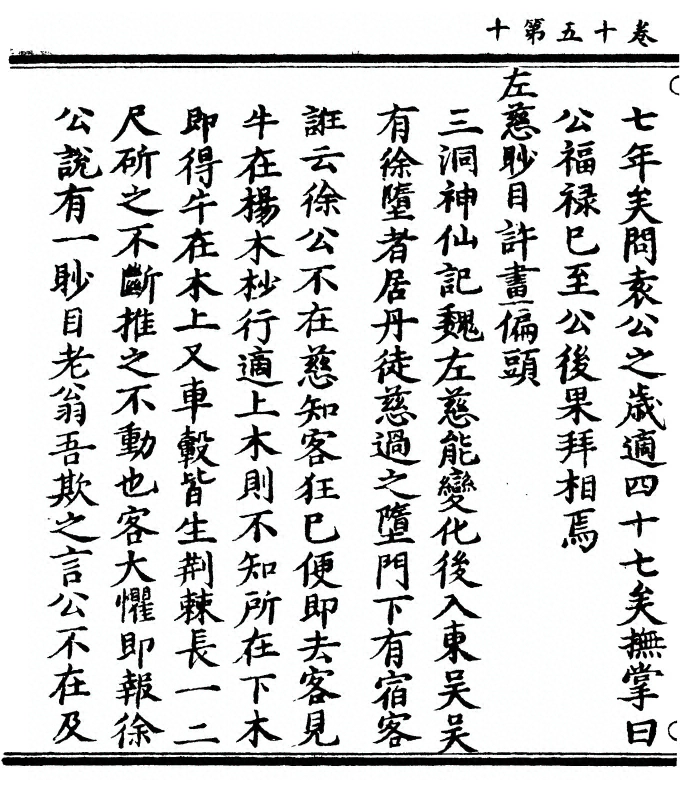 卷十五第十
七年矣問袁公之歲適四十七矣撫掌曰
公福禄巳至公後果拜相焉
左慈眇目許畫偏頭
三洞神仙記魏左慈能變化後入東吳吳
有徐墮者居丹徒慈過之墮門下有宿客
誑云徐公不在慈知客狂巳便即去客見
牛在楊木杪行適上木則不知所在下木
即得牛在木上又車轂皆生荆棘長一二
尺斫之不斷推之不動也客大懼即報徐
公說有一眇目老翁吾欺之言公不在及